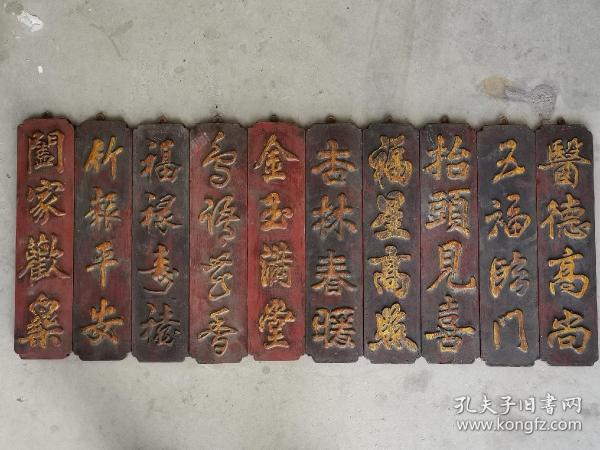 醫德高尚
五福臨門
抬頭見喜
福星高照
杏林春暖
金玉滿堂
鳥語花香
福祿壽禧
竹報平安
闔家歡樂
孔夫子旧书网
www.kongfz.com